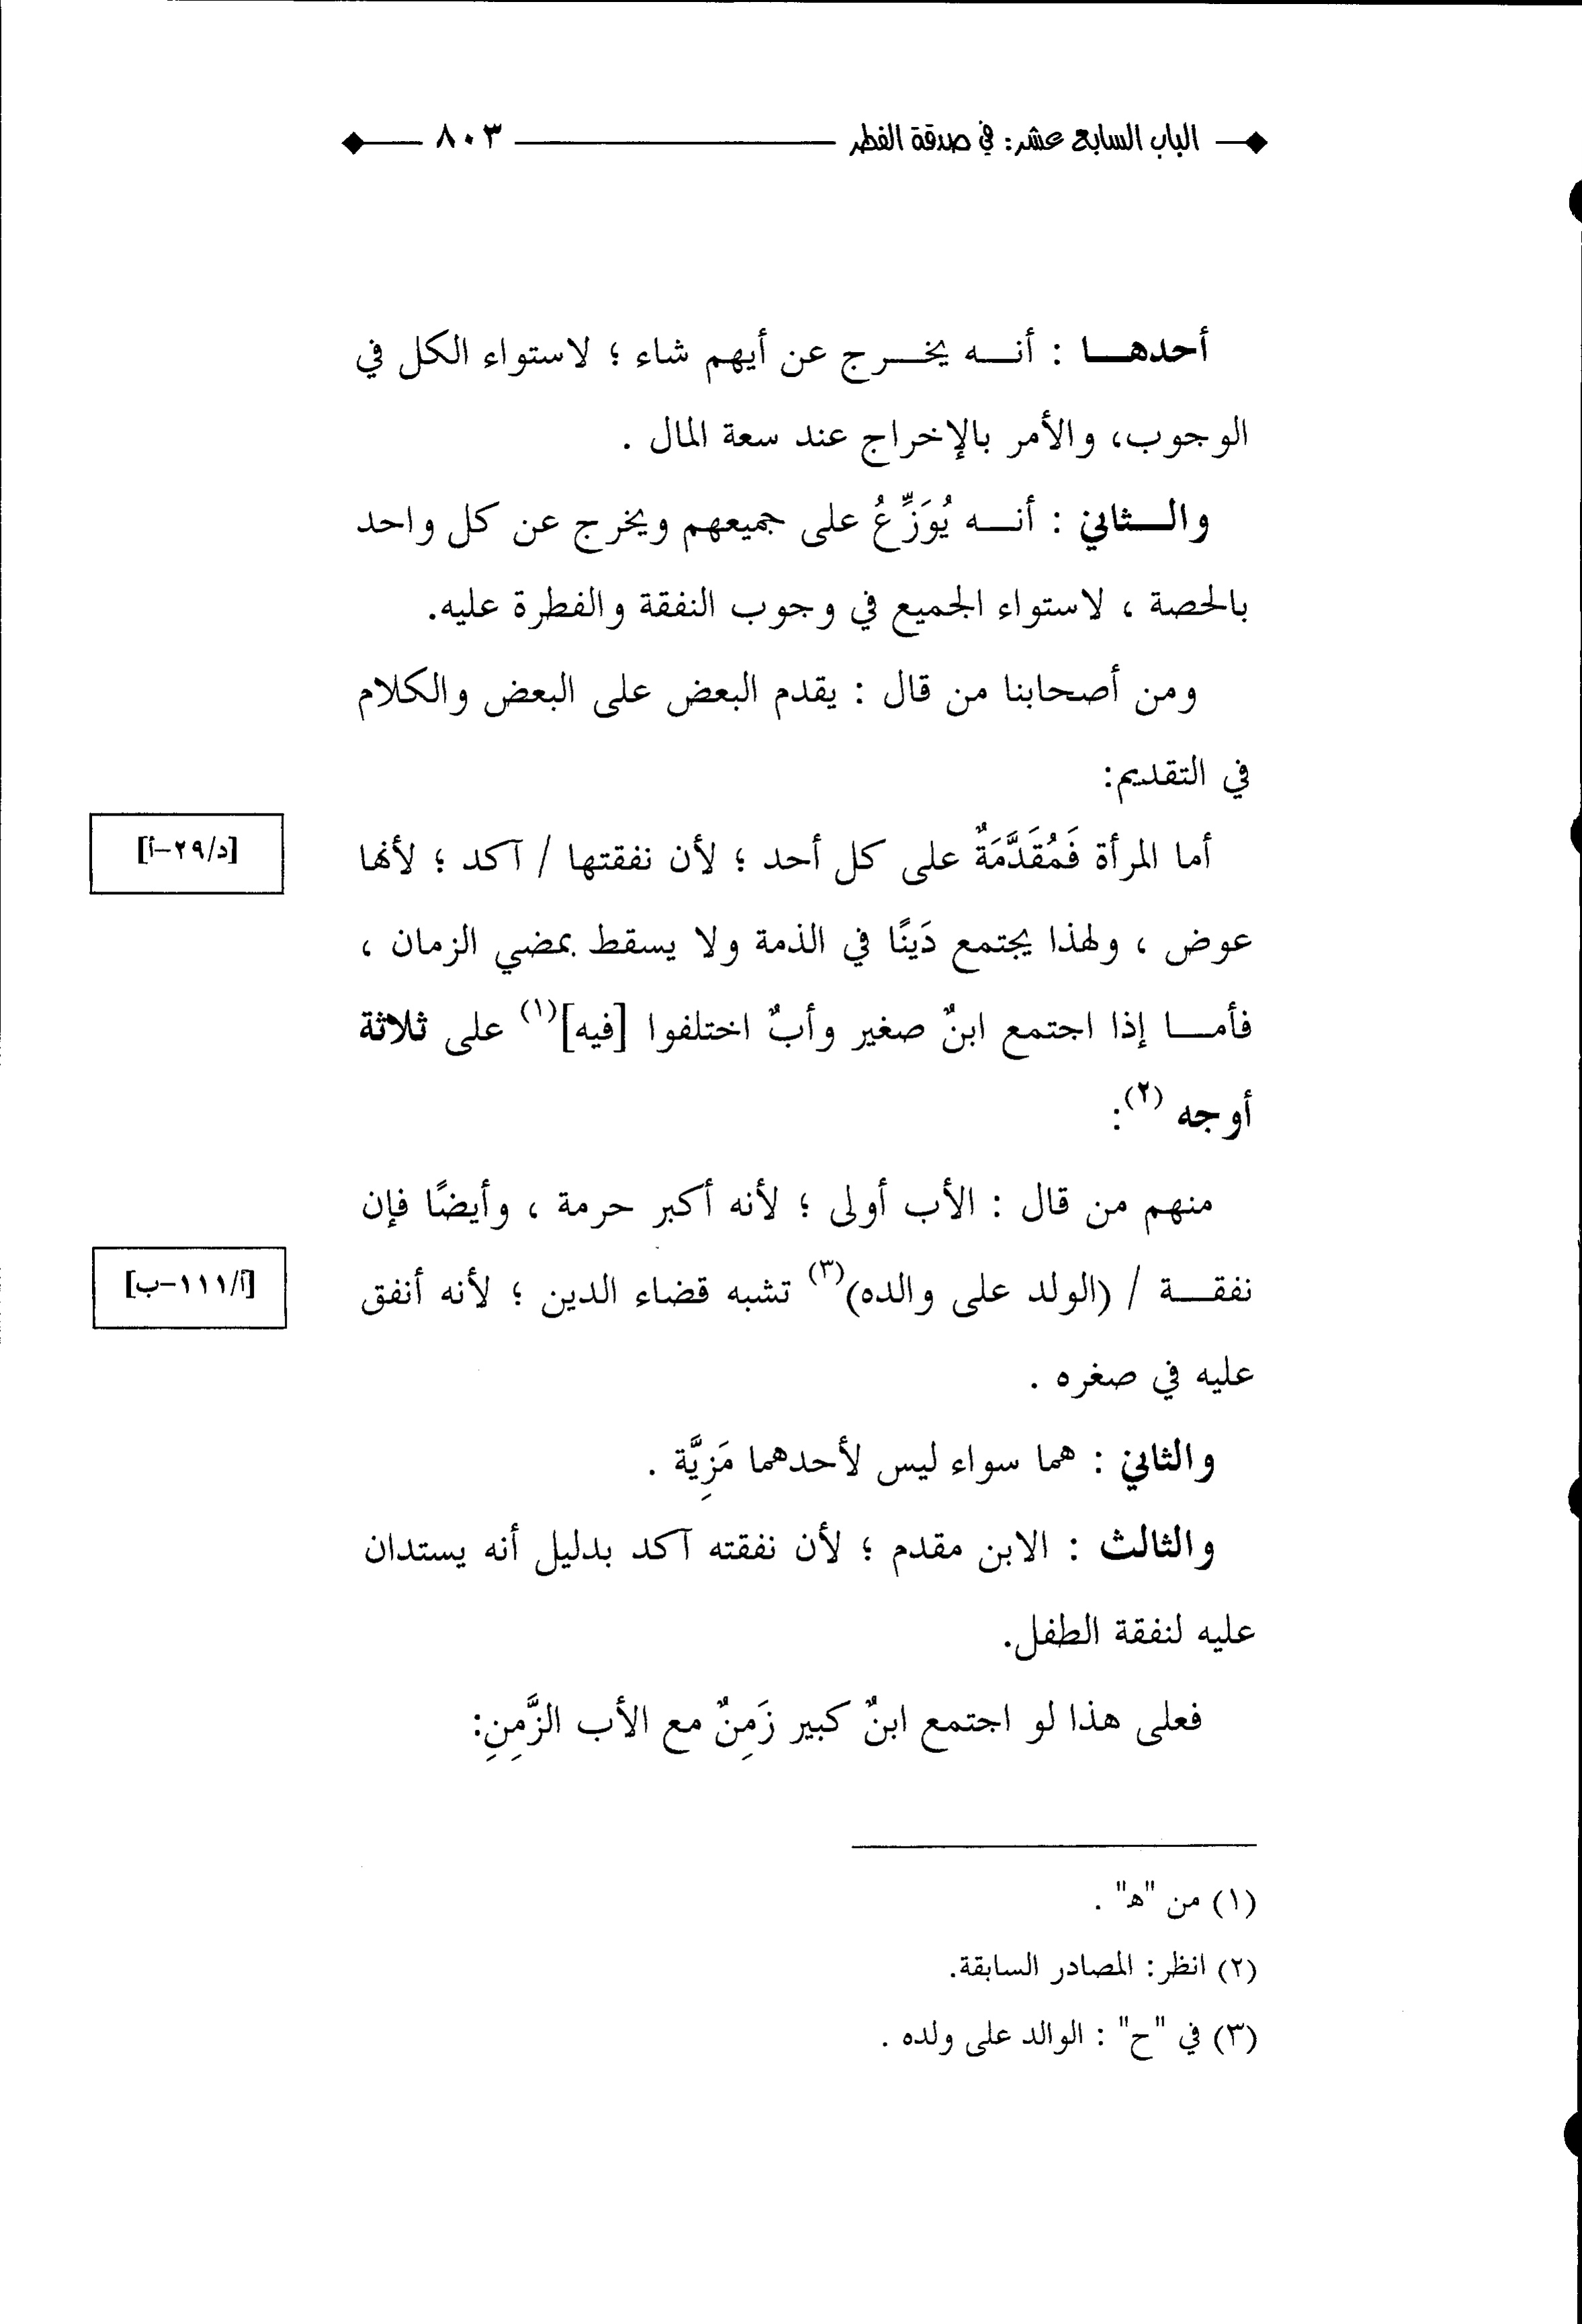 الباب السابع عشر: في صدقة الفطر ٨٠٣
أحدهـــا : أنـــه يخـــرج عن أيهم شاء ؛ لاستواء الكل في
الوجوب، والأمر بالإخراج عند سعة المال .
والـــثاني : أنـــه يُوَزِّعُ على جميعهم ويخرج عن كل واحد
بالحصة ، لاستواء الجميع في وجوب النفقة والفطرة عليه.
ومن أصحابنا من قال : يقدم البعض على البعض والكلام
في التقديم:
أما المرأة فَمُقَدَّمَةٌ على كل أحد ؛ لأن نفقتها / آكد ؛ لأنها
[د/٢٩-أ]
عوض ، ولهذا يجتمع دَينًا في الذمة ولا يسقط بمضي الزمان ،
فأمـــا إذا اجتمع ابنٌ صغير وأبٌ اختلفوا [فيه](١) على ثلاثة
أوجه (٢):
منهم من قال : الأب أولى ؛ لأنه أكبر حرمة ، وأيضًا فإن
نفقـــة / (الولد على والده)(٣) تشبه قضاء الدين ؛ لأنه أنفق
[أ/١١١-ب]
عليه في صغره .
والثاني : هما سواء ليس لأحدهما مَزِيَّة .
والثالث : الابن مقدم ؛ لأن نفقته آكد بدليل أنه يستدان
عليه لنفقة الطفل.
فعلى هذا لو اجتمع ابنٌ كبير زَمِنٌ مع الأب الزَّمِنِ:
(١) من "ه" .
(٢) انظر: المصادر السابقة.
(٣) في "ح" : الوالد على ولده .